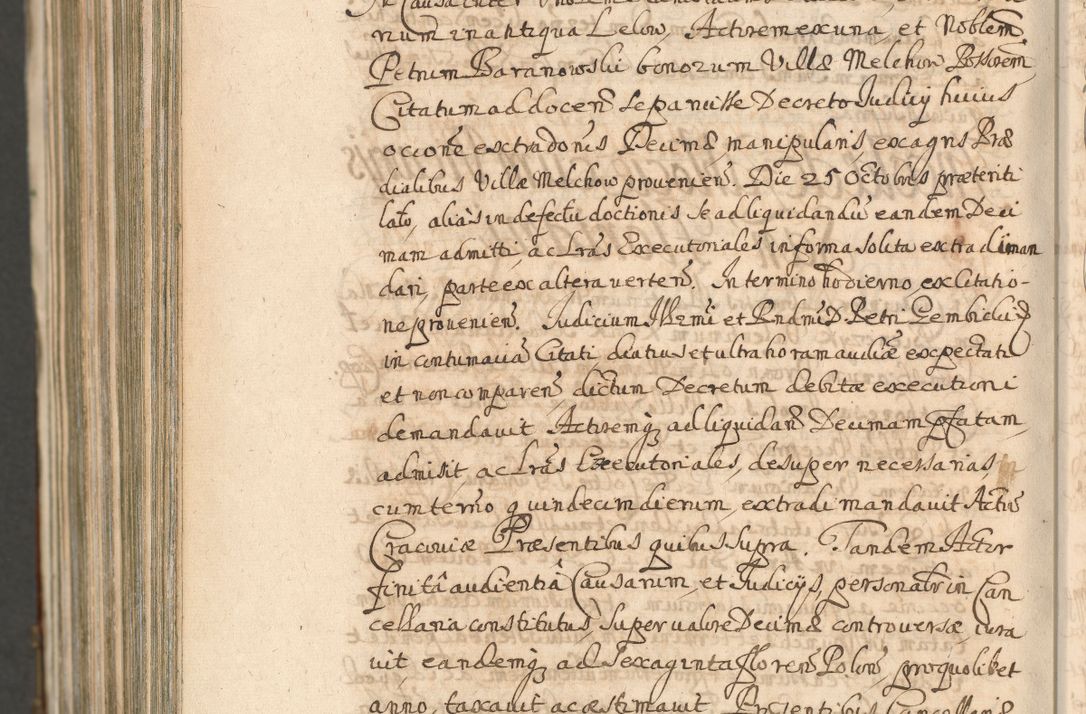 num in antiqua Lelow, Actorem ex una, et Noblem
Petrum Baranowski bonorum Villæ Melchow Possorem
Citatum ad docen se paruisse Decreto Iudicij huius
ocione extradonis Decimæ manipularis, ex agris Præ
dialibus Villæ Melchow provenien. Die 25 Octobris præteriti
lato, alias in defectu doctionis se ad liquidandu eandem Deci
mam admitti, ac Lras Executoriales in forma solita extradi man
dari, parte ex altera verten. In termino hodierno ex Citatio-
ne provenien. Iudicium Illrmi et Rndmi D Petri Gembicki
in contumacia Citati diutius et ultra horam audiæ expectati
et non comparen dictum Decretum debitæ executioni
demandavit Actoremq ad liquidan Decimam pfatam,
admisit, ac Lras Executoriales, desuper necessarias in
cum termo quindecim dierum, extradi mandavit Actis
Cracoviæ Præsentibus quibus supra. Tandem Actor
finitâ audientiâ Causarum, et Iudicijs, personalr in Can
cellaria constitutus, super valore Decimæ controversæ, iura
vit eandemq ad sexaginta floren Polon, pro quolibet
anno, taxavit ac æstimavit. Præsentibus Cancellariæ